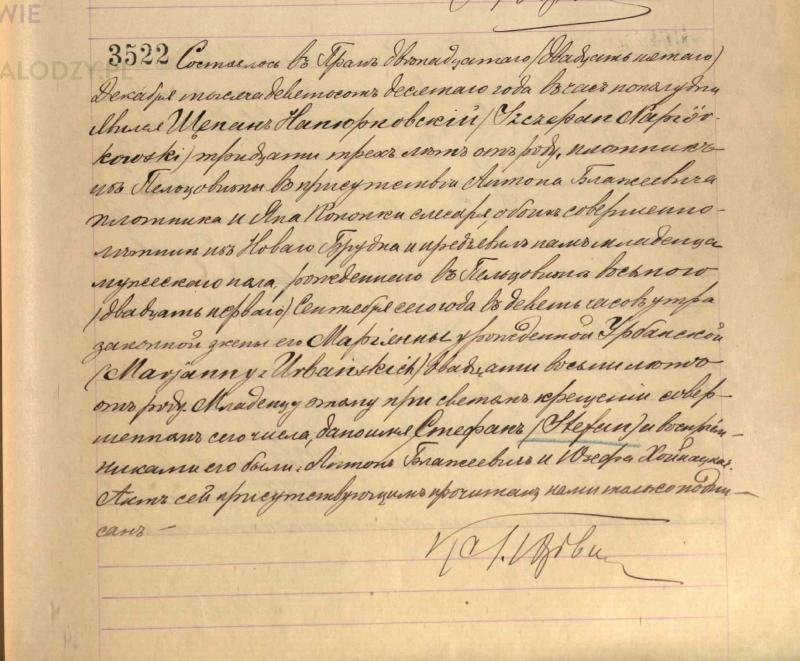 WIE
ALODZY.PL
3522 Состоялось въ Прагѣ двѣнадцатаго (двадцать пятаго)
Декабря тысяча девятьсотъ десятаго года въ часъ пополудни
Явился Щепанъ Напюрковскій (Szczepan Napiór-
kowski) тридцати трехъ лѣтъ отъ роду, плотникъ
изъ Пельцовизны въ присутствіи Антона Блажеевича
плотника и Яна Конопки слесаря, обоихъ совершенно-
лѣтнихъ изъ Новаго Брудна и предъявилъ намъ младенца
мужескаго пола, рожденнаго въ Пельцовизнѣ восьмого
(двадцать перваго) Сентября сего года въ девять часовъ утра
законной жены его Маріянны урожденной Урбанской
(Marjanny z Urbańskich) двадцати восьми лѣтъ
отъ роду. Младенцу этому при святомъ крещеніи совер-
шенномъ сего числа, дано имя Стефанъ (Stefan) и воспріем-
никами его были: Антонъ Блажеевичъ и Юзефа Хойнацкая.
Актъ сей присутствующимъ прочитанъ, нами только подпи-
санъ —